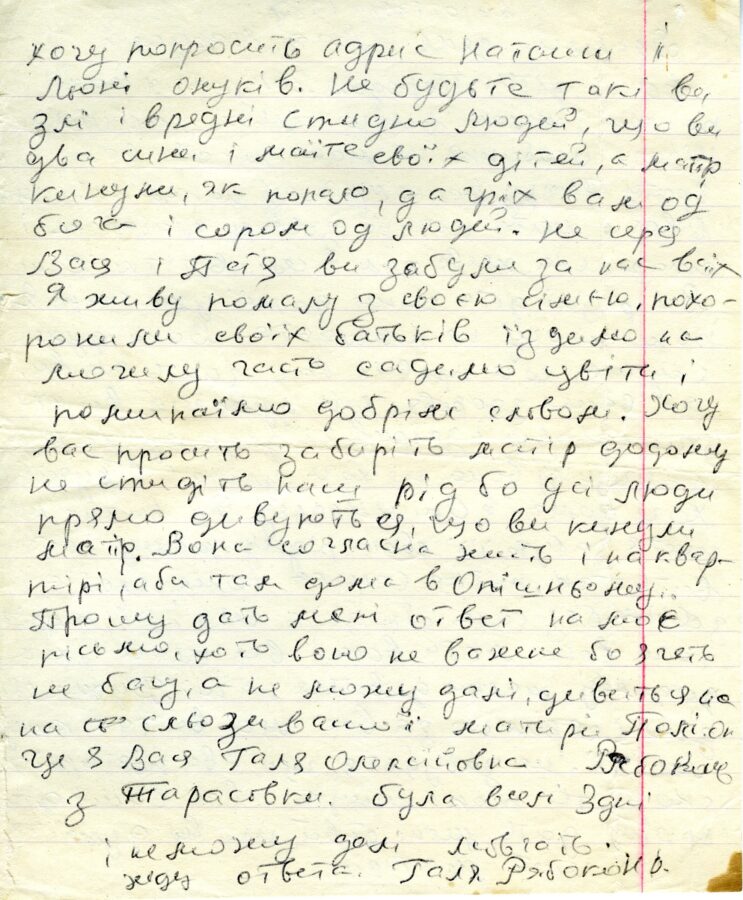 хочу попросить адрис Наташи й
Люні онуків. Не будьте такі ви
злі і вредні стидно людей, що ви
два сини і маїте своїх дітей, а матір
кинули, як попало, да гріх вам од
бога і сором од людей. Не серд
Вася і Петя ви забули за нас всіх
Я живу помалу з своєю сімєю, похо-
ронили своїх батьків їздимо на
могилу часто садимо цвіти і
поминаїмо добрім словом. Хочу
вас просить забиріть матір додому
не стидіть наш рід бо усі люди
прямо дивуються, що ви кинули
матір. Вона согласна жить і на квар-
тирі, аби там дома в Опішньому.
Прошу дать мені ответ на моє
пісьмо, хоть воно не важне бо
не бачу, а не можу далі, дивиться на
на сльози вашої матирі Полі.
це я Вася Галя Олексіївна Рябоконь
з Тарасівки. була в
і неможу далі мовчать.
жду ответа. Галя Рябоконь.